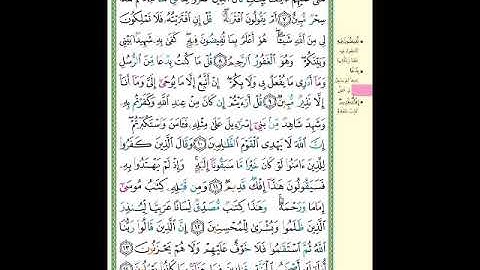 سِحْرٌ مُّبِينٌ ٧ أَمْ يَقُولُونَ ٱفْتَرَىٰهُ قُلْ إِنِ ٱفْتَرَيْتُهُۥ فَلَا تَمْلِكُونَ
لِى مِنَ ٱللَّهِ شَيْـًٔا هُوَ أَعْلَمُ بِمَا تُفِيضُونَ فِيهِ كَفَىٰ بِهِۦ شَهِيدًۢا بَيْنِى
وَبَيْنَكُمْ وَهُوَ ٱلْغَفُورُ ٱلرَّحِيمُ ٨ قُلْ مَا كُنتُ بِدْعًا مِّنَ ٱلرُّسُلِ
وَمَآ أَدْرِى مَا يُفْعَلُ بِى وَلَا بِكُمْ إِنْ أَتَّبِعُ إِلَّا مَا يُوحَىٰٓ إِلَىَّ وَمَآ أَنَا۠
إِلَّا نَذِيرٌ مُّبِينٌ ٩ قُلْ أَرَءَيْتُمْ إِن كَانَ مِنْ عِندِ ٱللَّهِ وَكَفَرْتُم بِهِۦ
وَشَهِدَ شَاهِدٌ مِّنۢ بَنِىٓ إِسْرَٰٓءِيلَ عَلَىٰ مِثْلِهِۦ فَـَٔامَنَ وَٱسْتَكْبَرْتُمْ
إِنَّ ٱللَّهَ لَا يَهْدِى ٱلْقَوْمَ ٱلظَّـٰلِمِينَ ١٠ وَقَالَ ٱلَّذِينَ كَفَرُوا۟
لِلَّذِينَ ءَامَنُوا۟ لَوْ كَانَ خَيْرًا مَّا سَبَقُونَآ إِلَيْهِ وَإِذْ لَمْ يَهْتَدُوا۟ بِهِۦ
فَسَيَقُولُونَ هَـٰذَآ إِفْكٌ قَدِيمٌ ١١ وَمِن قَبْلِهِۦ كِتَـٰبُ مُوسَىٰٓ
إِمَامًا وَرَحْمَةً وَهَـٰذَا كِتَـٰبٌ مُّصَدِّقٌ لِّسَانًا عَرَبِيًّا لِّيُنذِرَ
ٱلَّذِينَ ظَلَمُوا۟ وَبُشْرَىٰ لِلْمُحْسِنِينَ ١٢ إِنَّ ٱلَّذِينَ قَالُوا۟ رَبُّنَا
ٱللَّهُ ثُمَّ ٱسْتَقَـٰمُوا۟ فَلَا خَوْفٌ عَلَيْهِمْ وَلَا هُمْ يَحْزَنُونَ ١٣